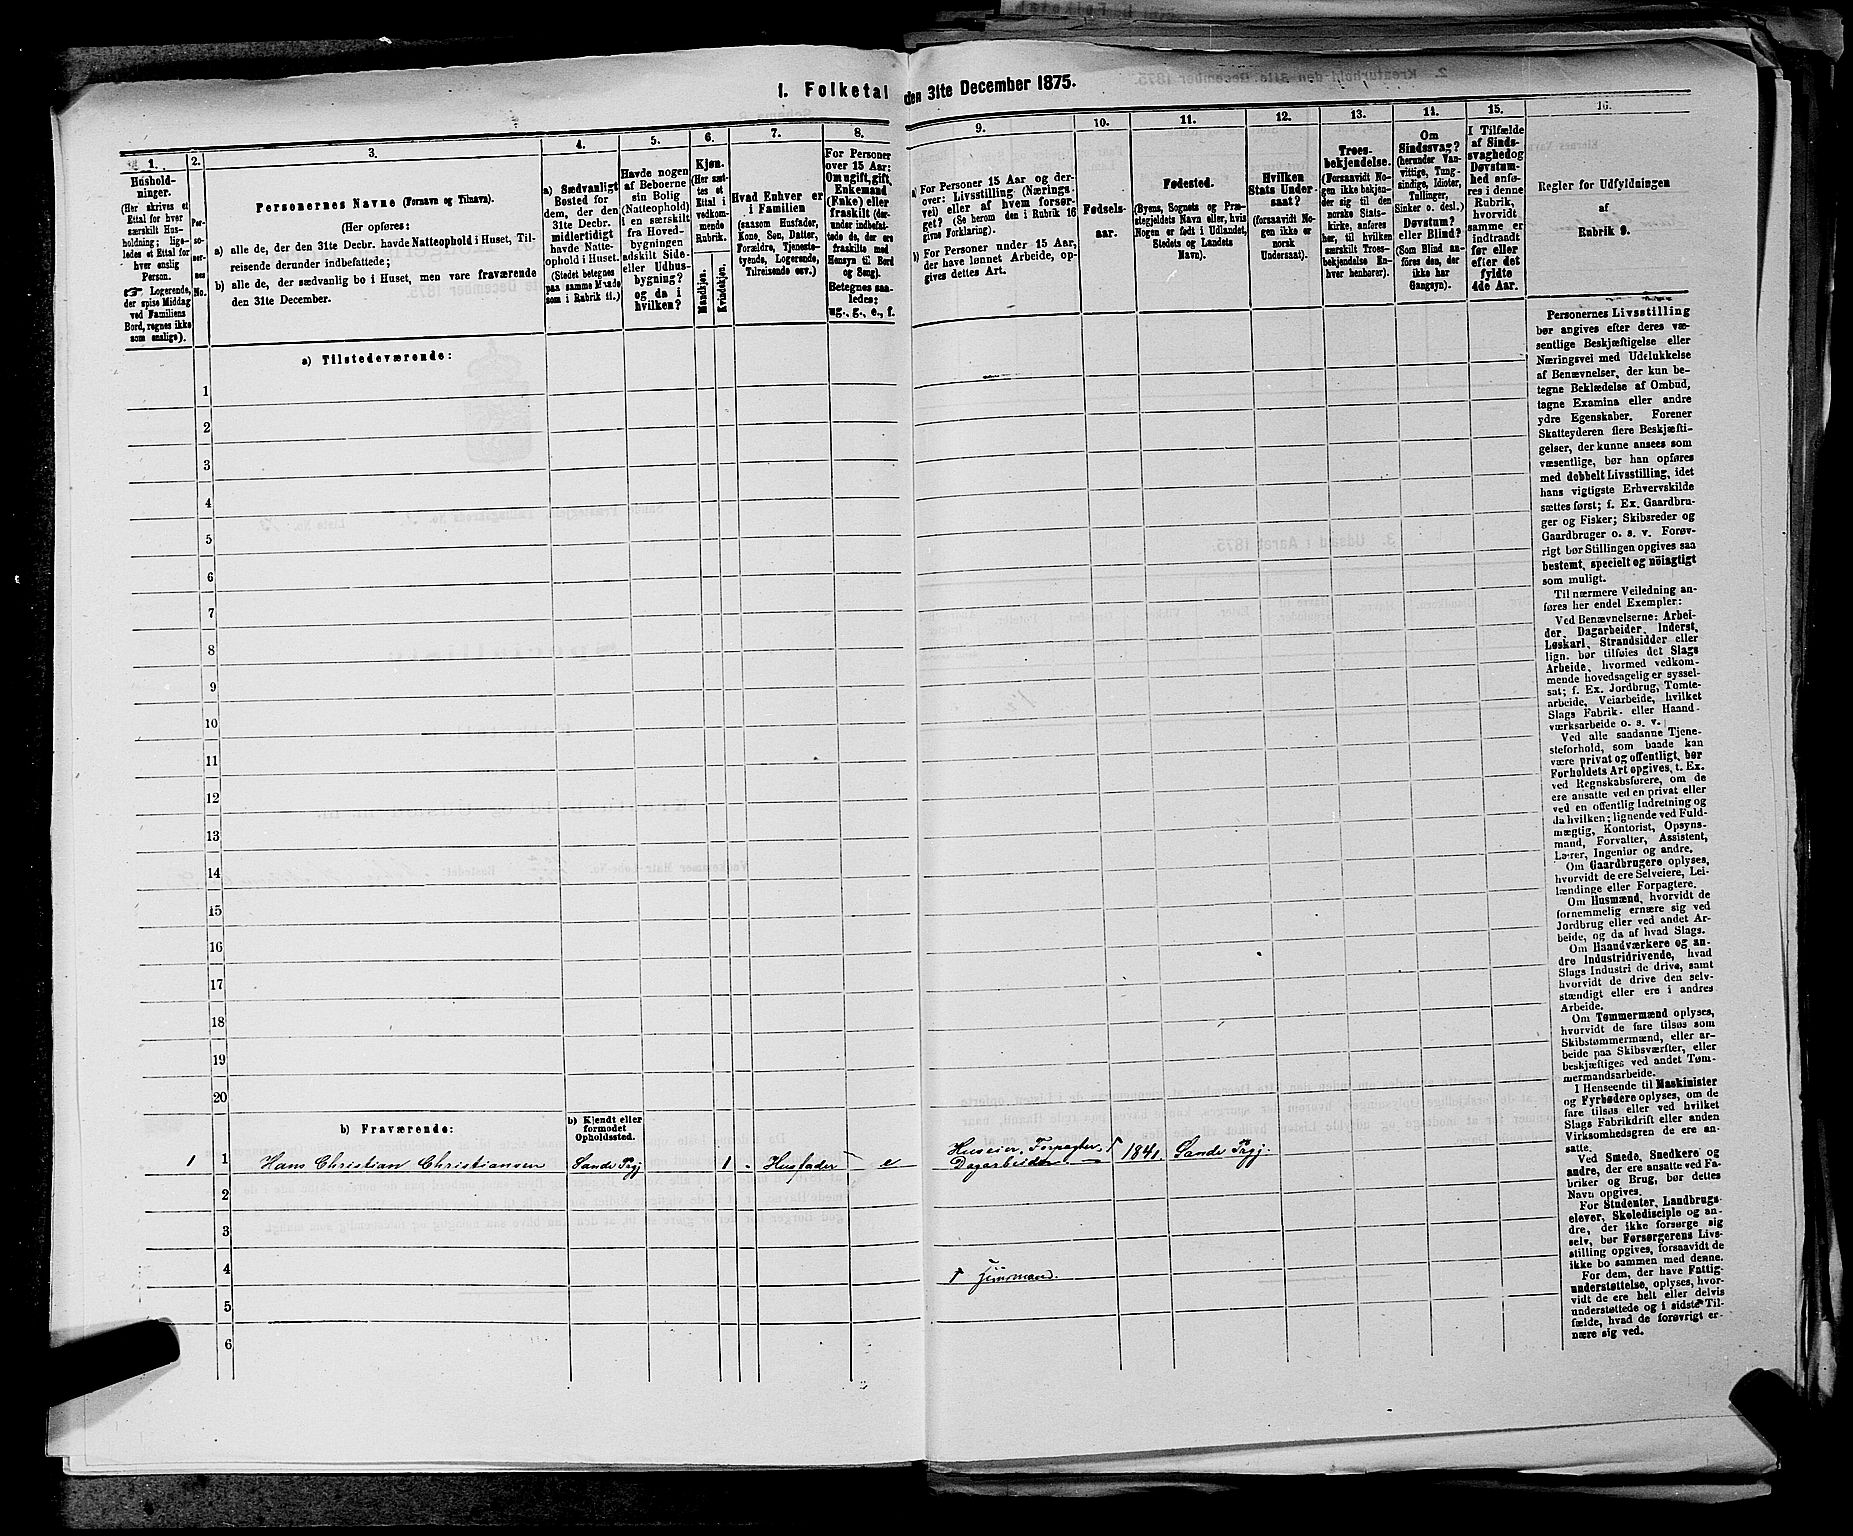 1. Folketal den 31te December 1875.
1.
Hushold-
ninger.
(Her skrives et
Ettal for hver
særskilt Hus-
holdning; lige-
ledes et Ettal for
hver enslig
Person.
☞ Logerende,
der spise Middag
ved Familiens
Bord, regnes ikke
som enslige).
2.
Per-
so-
ner-
nes
No.
3.
Personernes Navne (Fornavn og Tilnavn).
(Her opføres:
a) alle de, der den 31te Decbr. havde Natteophold i Huset, Til-
reisende derunder indbefattede;
b) alle de, der sædvanlig bo i Huset, men vare fraværende
den 31te December.
4.
a) Sædvanligt
Bosted for
dem, der den
31te Decbr.
midlertidigt
havde Natte-
ophold i Huset.
(Stedet betegnes
paa samme Maade
som i Rubrik 11.)
5.
Havde nogen
af Beboerne
sin Bolig
(Natteophold)
i en særskilt
fra Hoved-
bygningen
adskilt Side-
eller Udhus-
bygning?
og da i
hvilken?
6.
Kjøn.
(Her sæt-
tes et
Ettal i
vedkom-
mende
Rubrik.
Mandkjøn.
Kvindekjøn.
7.
Hvad Enhver er
i Familien
(saasom Husfader,
Kone, Søn, Datter,
Forældre, Tjeneste-
tyende, Logerende,
Tilreisende osv.)
8.
For Personer
over 15 Aar:
Om ugift, gift,
Enkemand
(Enke) eller
fraskilt (der-
under indbefat-
tede de, der ere
fraskilte med
Hensyn til Bord
og Seng).
Betegnes saa-
ledes:
ug., g., e., f.
9.
a) For Personer 15 Aar og der-
over: Livsstilling (Nærings-
vei) eller af hvem forsør-
get? (Se herom den i Rubrik 16
givne Forklaring).
b) For Personer under 15 Aar,
der have lønnet Arbeide, op-
gives dettes Art.
10.
Fødsels-
aar.
11.
Fødested.
(Byens, Sognets og Præ-
stegjeldets Navn eller, hvis
Nogen er født i Udlandet,
Stedets og Landets
Navn).
12.
Hvilken
Stats Under-
saat?
(forsaavidt No-
gen ikke er
norsk
Undersaat).
13.
Troes-
bekjendelse.
(Forsaavidt No-
gen ikke bekjen-
der sig til den
norske Stats-
kirke, anføres
her, til hvilken
særskilt Troes-
bekjendelse En-
hver henhører).
14.
Om
Sindssvag?
(herunder Van-
vittige, Tung-
sindige, Idioter,
Tullinger,
Sinker o. desl.)
Døvstum?
eller Blind?
(Som Blind an-
føres den, der
ikke har
Gangsyn).
15.
I Tilfælde
af Sinds-
svaghed og
Døvstum-
hed anfø-
res i denne
Rubrik,
hvorvidt
samme er
indtraadt
før eller
efter det
fyldte
4de Aar.
16.
Regler for Udfyldningen
af
Rubrik 9.
Personernes Livsstilling
bør angives efter deres væ-
sentlige Beskjæftigelse eller
Næringsvei med Udelukkelse
af Benævnelser, der kun be-
tegne Beklædelse af Ombud,
tagne Examina eller andre
ydre Egenskaber. Forener
Skatteyderen flere Beskjæfti-
gelser, der kunne ansees som
væsentlige, bør han opføres
med dobbelt Livsstilling, idet
hans vigtigste Erhvervskilde
sættes først; f. Ex. Gaardbru-
ger og Fisker; Skibsreder og
Gaardbruger o. s. v. Forøv-
rigt bør Stillingen opgives saa
bestemt, specielt og nöiagtigt
som muligt.
Til nærmere Veiledning an-
føres her endel Exempler:
Ved Benævnelserne: Arbei-
der, Dagarbeider, Inderst,
Løskarl, Strandsidder eller
lign. bør tilføies det Slags
Arbeide, hvormed vedkom-
mende hovedsagelig er syssel-
sat; f. Ex. Jordbrug, Tomte-
arbeide, Veiarbeide, hvilket
Slags Fabrik- eller Haand-
værksarbeide o. s. v.
Ved alle saadanne Tjene-
steforhold, som baade kan
være privat og offentligt, bør
Forholdets Art opgives, t. Ex.
ved Regnskabsførere, om de
ere ansatte ved en privat eller
ved en offentlig Indretning og
da hvilken; lignende ved Fuld-
mægtig, Kontorist, Opsyns-
mand, Forvalter, Assistent,
Lærer, Ingeniør og andre.
Om Gaardbrugere oplyses,
hvorvidt de ere Selveiere, Lei-
lændinge eller Forpagtere.
Om Husmænd, hvorvidt de
fornemmelig ernære sig ved
Jordbrug eller ved andet Ar-
beide, og da af hvad Slags.
Om Haandværkere og an-
dre Industridrivende, hvad
Slags Industri de drive, samt
hvorvidt de drive den selv-
stændigt eller ere i andres
Arbeide.
Om Tømmermænd oplyses,
hvorvidt de fare tilsøs som
Skibstømmermænd, eller ar-
beide paa Skibsværfter, eller
beskjæftiges ved andet Tøm-
mermandsarbeide.
I Henseende til Maskinister
og Fyrbødere oplyses, om de
fare tilsøs eller ved hvilket
Slags Fabrikdrift eller anden
Virksomhedsgren de ere an-
satte.
Ved Smede, Snedkere og
andre, der ere ansatte ved Fa-
briker og Brug, bør dettes
Navn opgives.
For Studenter, Landbrugs-
elever, Skoledisciple og an-
dre, der ikke forsørge sig
selv, bør Forsørgerens Livs-
stilling opgives, forsaavidt de
ikke bo sammen med denne.
For dem, der have Fattig-
understøttelse, oplyses, hvor-
vidt de ere helt eller delvis
understøttede og i sidste Til-
fælde, hvad de forøvrigt er-
nære sig ved.
a) Tilstedeværende:
1
2
3
4
5
6
7
8
9
10
11
12
13
14
15
16
17
18
19
20
b) Fraværende:
b) Kjendt eller
formodet
Opholdssted.
1 1 Hans Christian Christiansen Sande Prgj 1 - Husfader e Huseier, Forpagter, 1841 Sande Prgj.
Dagarbeider
2
3
4
5
6